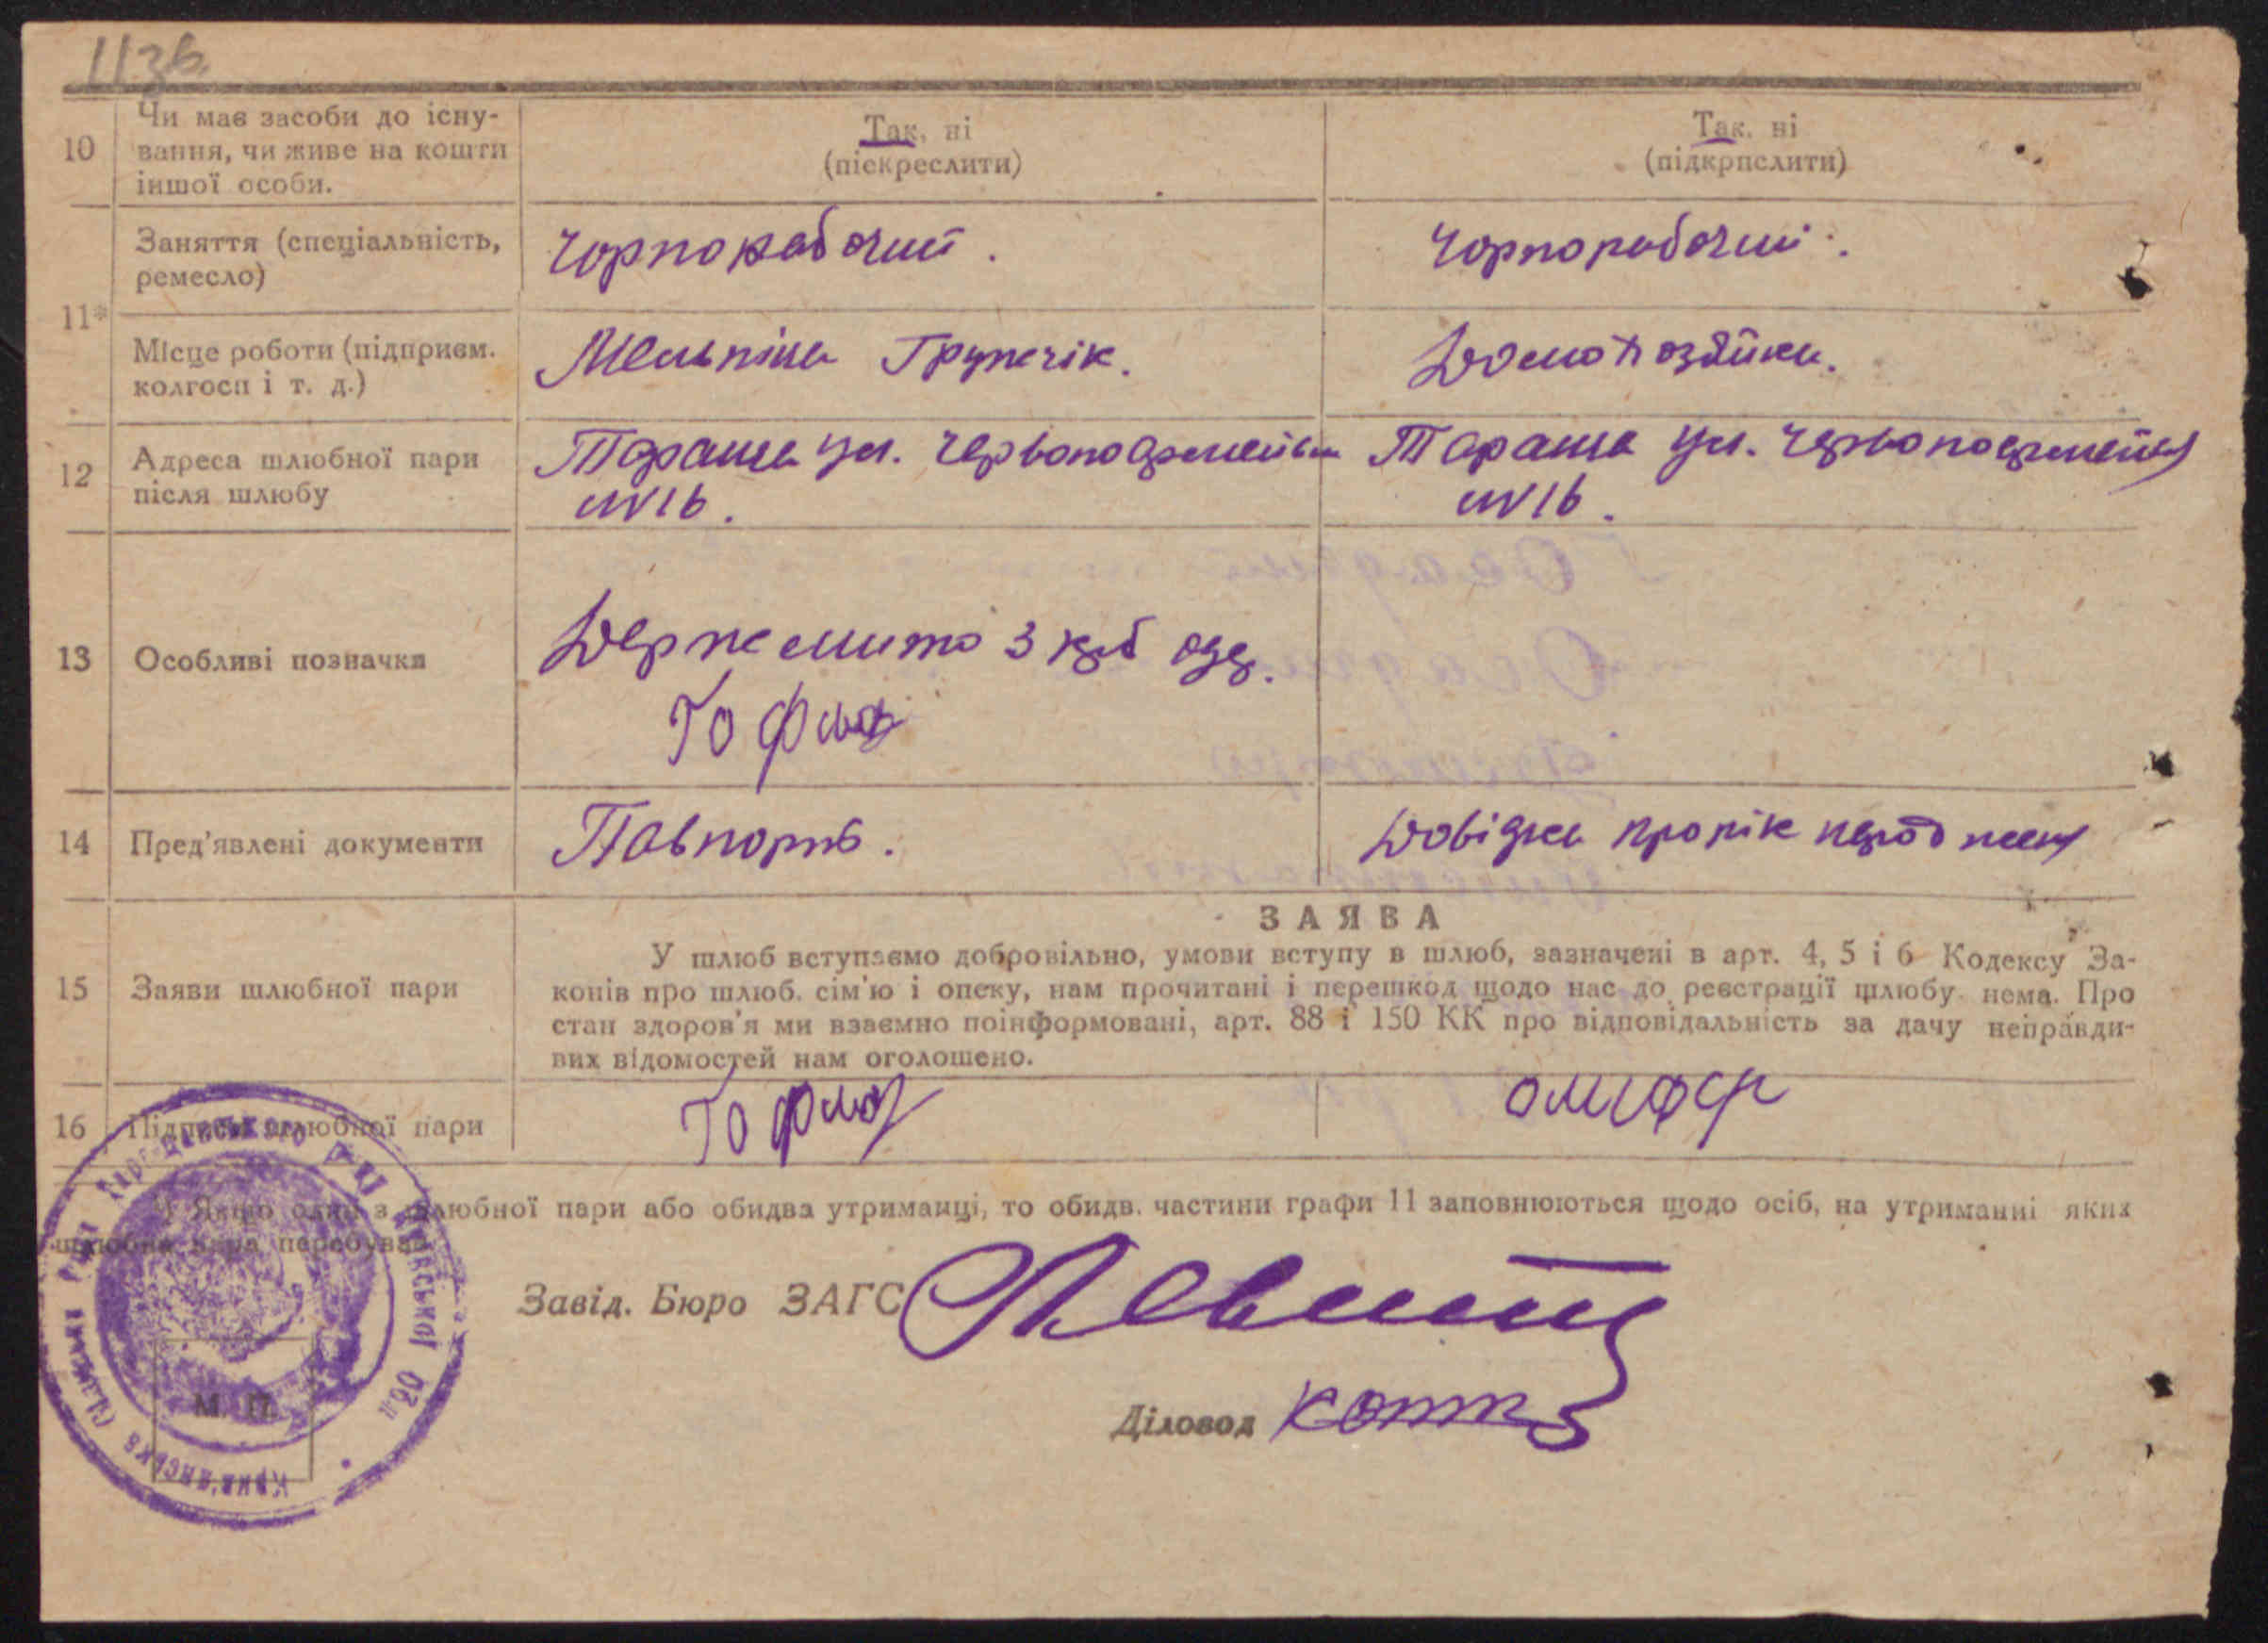 113б.
10
Чи має засоби до існу-
вання, чи живе на кошти
іншої особи.
Так, ні
(піекреслити)
Так. ні
(підкрпслити)
11*
Заняття (спеціальність,
ремесло)
Чорнорабочий.
Чорнорабочий.
Місце роботи (підприєм.
колгосп і т. д.)
Домохозяйка.
12
Адреса шлюбної пари
після шлюбу
Тараща ул. Червоноармейськ
№16.
Тараща ул. Червоноармейськ
№16.
13
Особливі позначки
Держмито 3 крб
14
Пред'явлені документи
Павпорт.
Довідка про рік народження
15
Заяви шлюбної пари
ЗАЯВА
У шлюб вступаємо добровільно, умови вступу в шлюб, зазначені в арт. 4, 5 і 6 Кодексу За-
конів про шлюб. сім'ю і опеку, нам прочитані і перешкод щодо нас до реєстрації шлюбу нема. Про
стан здоров'я ми взаємно поінформовані, арт. 88 і 150 КК про відповідальність за дачу неправди-
вих відомостей нам оголошено.
16
Підписи шлюбної пари
Якщо один з шлюбної пари або обидва утриманці, то обидв. частини графи 11 заповнюються щодо осіб, на утриманні яких
шлюбна пара перебуває
Завід. Бюро ЗАГС
Діловод
М. П.